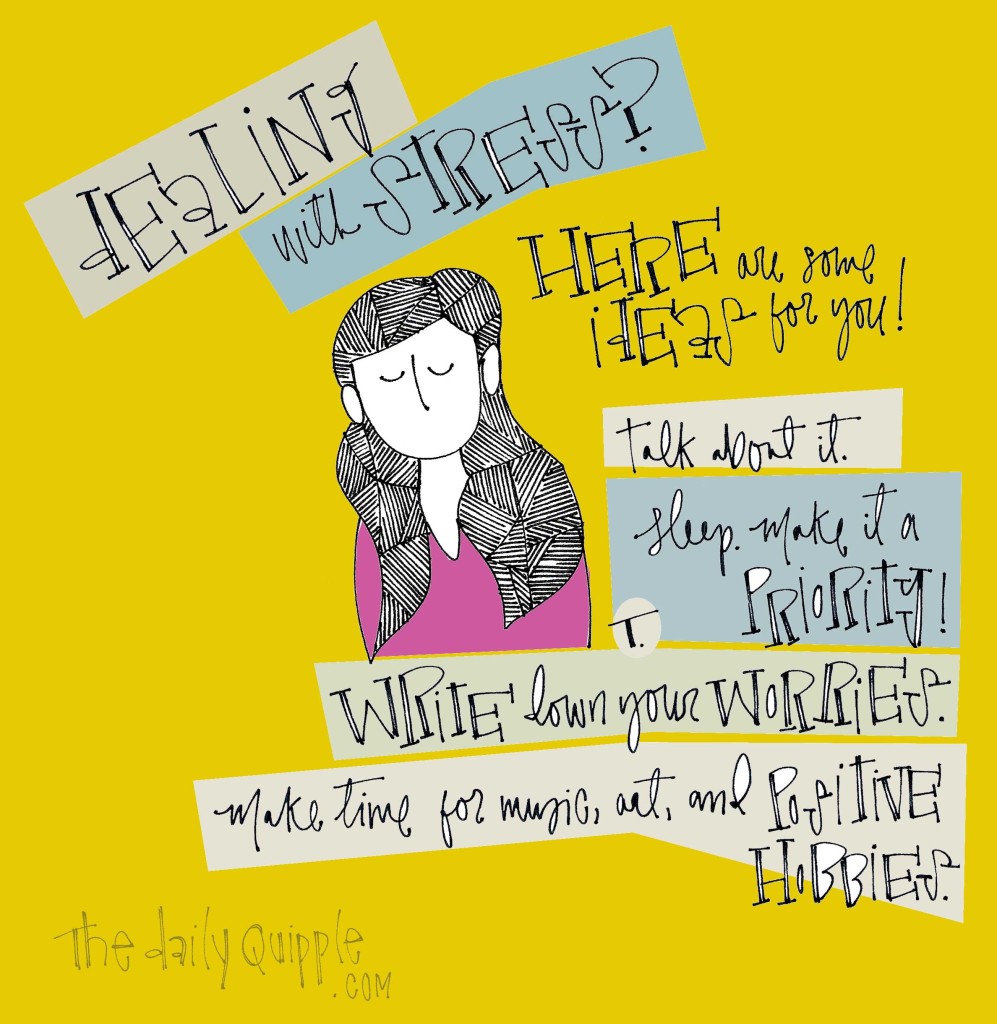 dEaLiNg
with STRESS?
HERE are some
idEaS for you!
talk about it.
sleep. make it a
PRioRiTy!
T.
WRiTE down your WoRRiES.
make time for music, art, and PoSiTiVE
HoBBiES.
The daily Quipple
.com